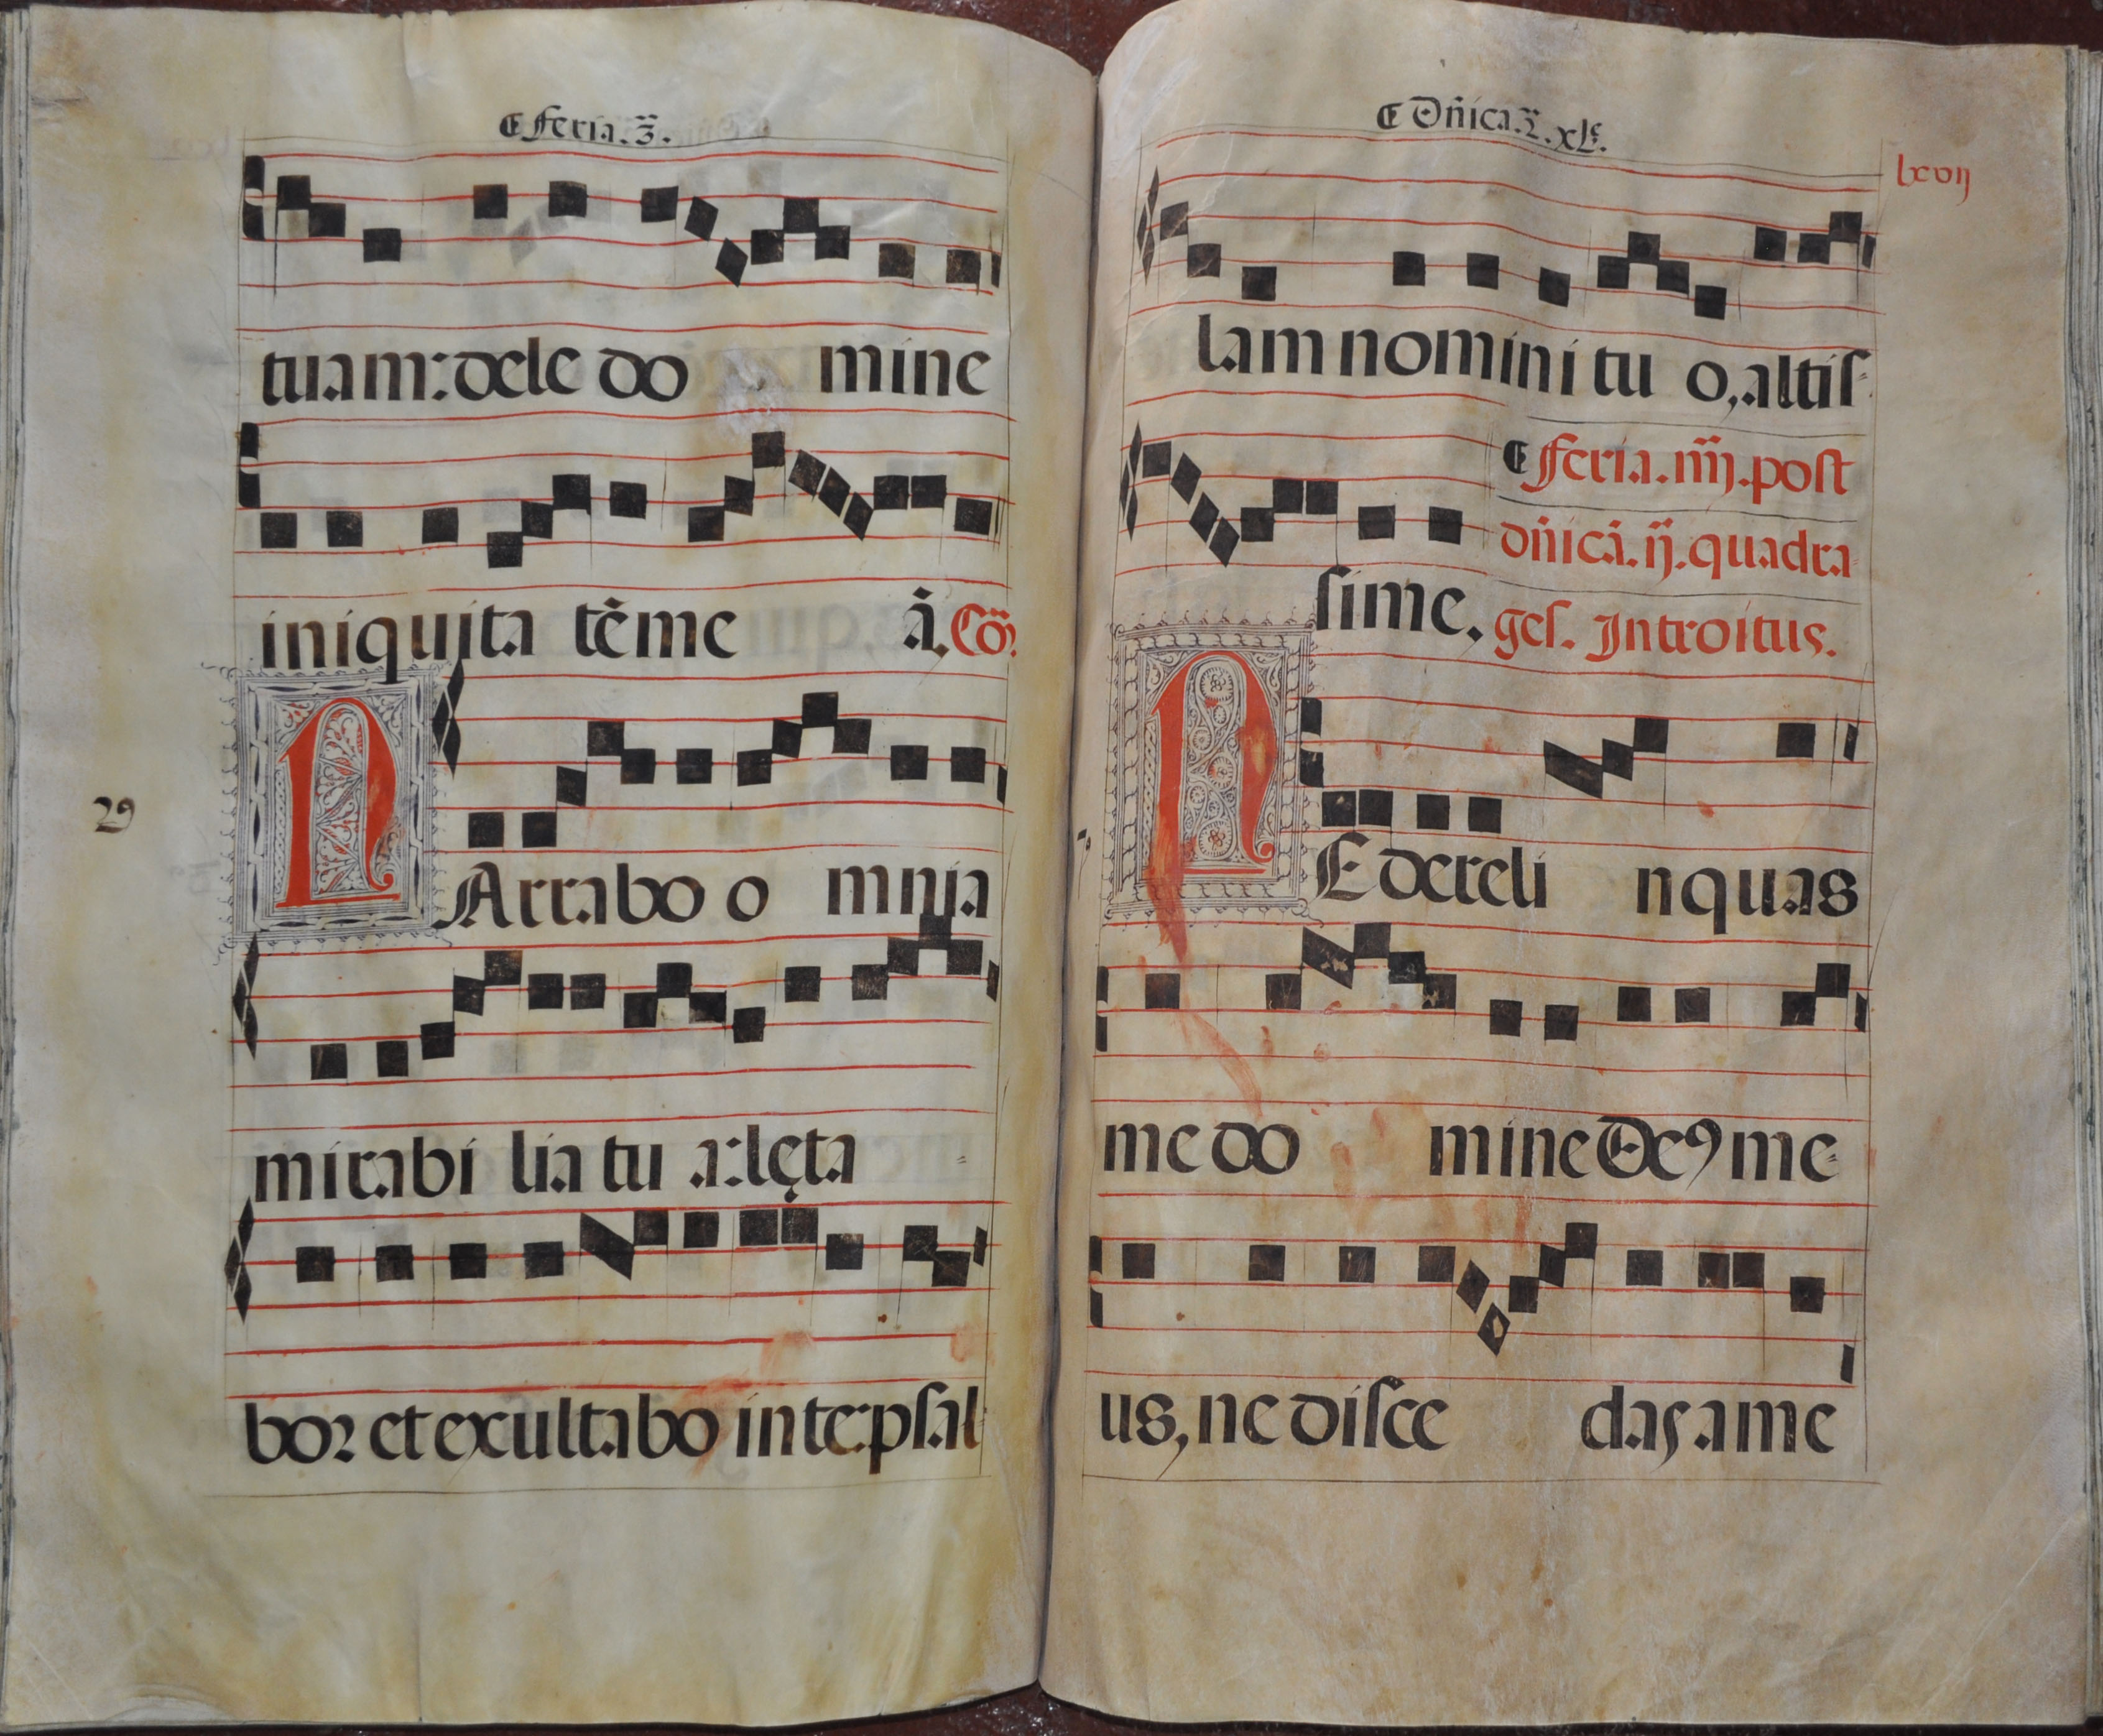 ¶ feria.3̃.
tuam: dele do mine
iniquita tẽ me ã. Cõ.
29
NArrabo o mnia
mirabi lia tu a: lęta
bor et exultabo in te: psal
¶ Dñica.2̃.xLe.
lxvij
lam nomini tu o, altis-
¶ feria. iiij. post
sime. dñicã. ij. quadra
ges. Introitus.
NE dereli nquas
me do mine Deꝯ me-
us, ne disce das a me